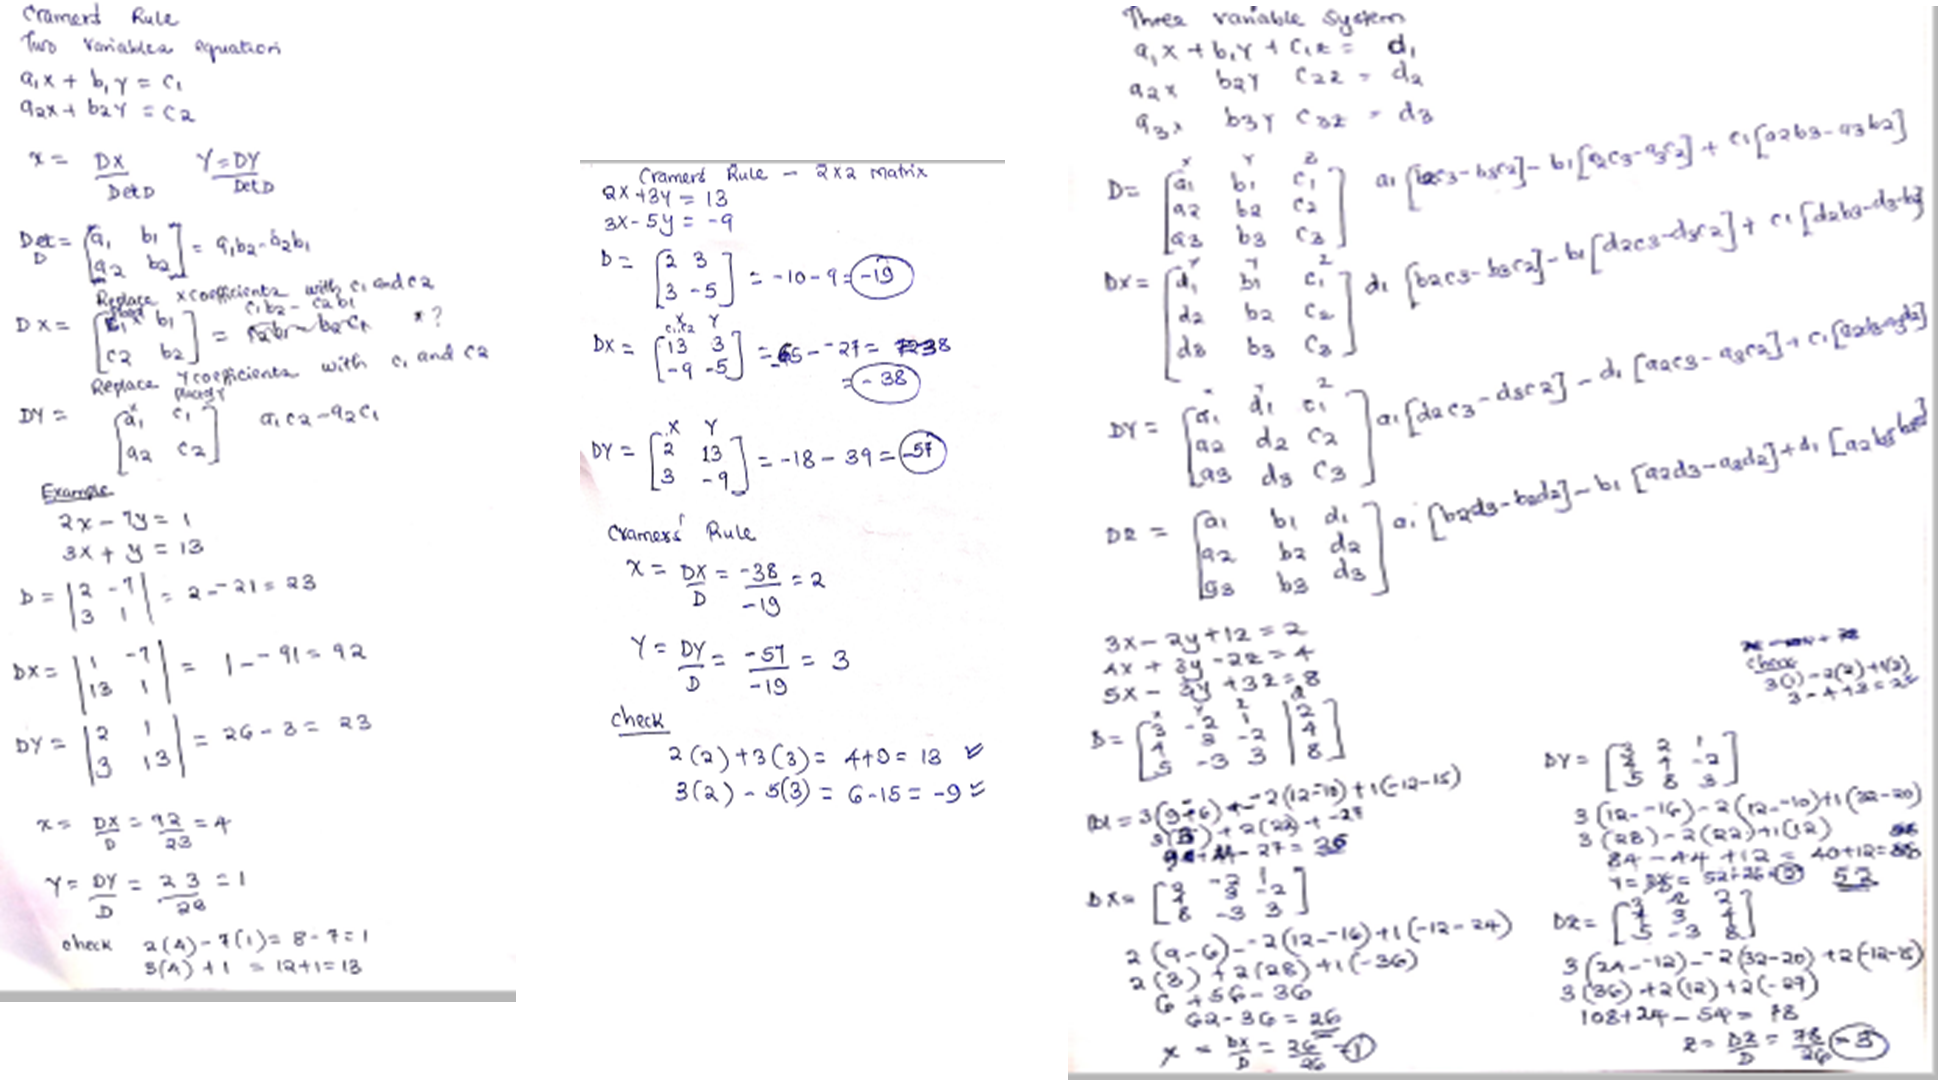 Cramers Rule
Two variables equation
a1x + b1y = c1
a2x + b2y = c2
x = DX / Det D   Y = DY / Det D
Det D = [a1 b1
a2 b2] = a1b2 - a2b1
Replace x coefficients with c1 and c2
c1b2 - c2b1
DX = [c1 b1
c2 b2] = * ?
Replace Y coefficients with c1 and c2
DY = [a1 c1
a2 c2] a1c2 - a2c1
Example
2x - 7y = 1
3x + y = 13
D = |2 -7
3 1| = 2 - -21 = 23
DX = |1 -7
13 1| = 1 - -91 = 92
DY = |2 1
3 13| = 26 - 3 = 23
x = DX / D = 92 / 23 = 4
Y = DY / D = 23 / 23 = 1
check 2(4) - 7(1) = 8 - 7 = 1
3(4) + 1 = 12 + 1 = 13
Cramers Rule - 2x2 matrix
2x + 3y = 13
3x - 5y = -9
D = [2 3
3 -5] = -10 - 9 = -19
c1c2 X Y
DX = [13 3
-9 -5] = -65 - -27 =
= -38
X Y
DY = [2 13
3 -9] = -18 - 39 = -57
Cramers' Rule
X = DX / D = -38 / -19 = 2
Y = DY / D = -57 / -19 = 3
check
2(2) + 3(3) = 4 + 9 = 13 ✓
3(2) - 5(3) = 6 - 15 = -9 ✓
Three variable system
a1x + b1y + c1z = d1
a2x b2y c2z = d2
a3x b3y c3z = d3
x Y z
D = [a1 b1 c1
a2 b2 c2
a3 b3 c3] a1[b2c3 - b3c2] - b1[a2c3 - a3c2] + c1[a2b3 - a3b2]
DX = [d1 b1 c1
d2 b2 c2
d3 b3 c3] d1[b2c3 - b3c2] - b1[d2c3 - d3c2] + c1[d2b3 - d3-b2]
DY = [a1 d1 c1
a2 d2 c2
a3 d3 c3] a1[d2c3 - d3c2] - d1[a2c3 - a3c2] + c1[a2d3 - a3d2]
DZ = [a1 b1 d1
a2 b2 d2
a3 b3 d3] a1[b2d3 - b3d2] - b1[a2d3 - a3d2] + d1
3x - 2y + 1z = 2
4x + 3y - 2z = 4
5x - 3y + 3z = 8
D = [3 -2 1 | 2
4 3 -2 | 4
5 -3 3 | 8]
3(9-6) - -2(12 - -10) + 1(-12-15)
3(3) + 2(22) + -27
- 27 = 26
DX = [2 -2 1
4 3 -2
8 -3 3]
2(9-6) - -2(12 - -16) + 1(-12-24)
2(3) + 2(28) + 1(-36)
6 + 56 - 36
62 - 36 = 26
x = DX / D = 26 / 26 = 1
check
3(1) - 2(2) + 1(3)
3 - 4 + 3 = 2 ✓
DY = [3 2 1
4 4 -2
5 8 3]
3(12 - -16) - 2(12 - -10) + 1(32-20)
3(28) - 2(22) + 1(12)
84 - 44 + 12 = 40 + 12 =
52
DZ = [3 -2 2
4 3 4
5 -3 8]
3(24 - -12) - -2(32-20) + 2(-12-15)
3(36) + 2(12) + 2(-27)
108 + 24 - 54 = 78
z = DZ / D = 78 / 26 = 3